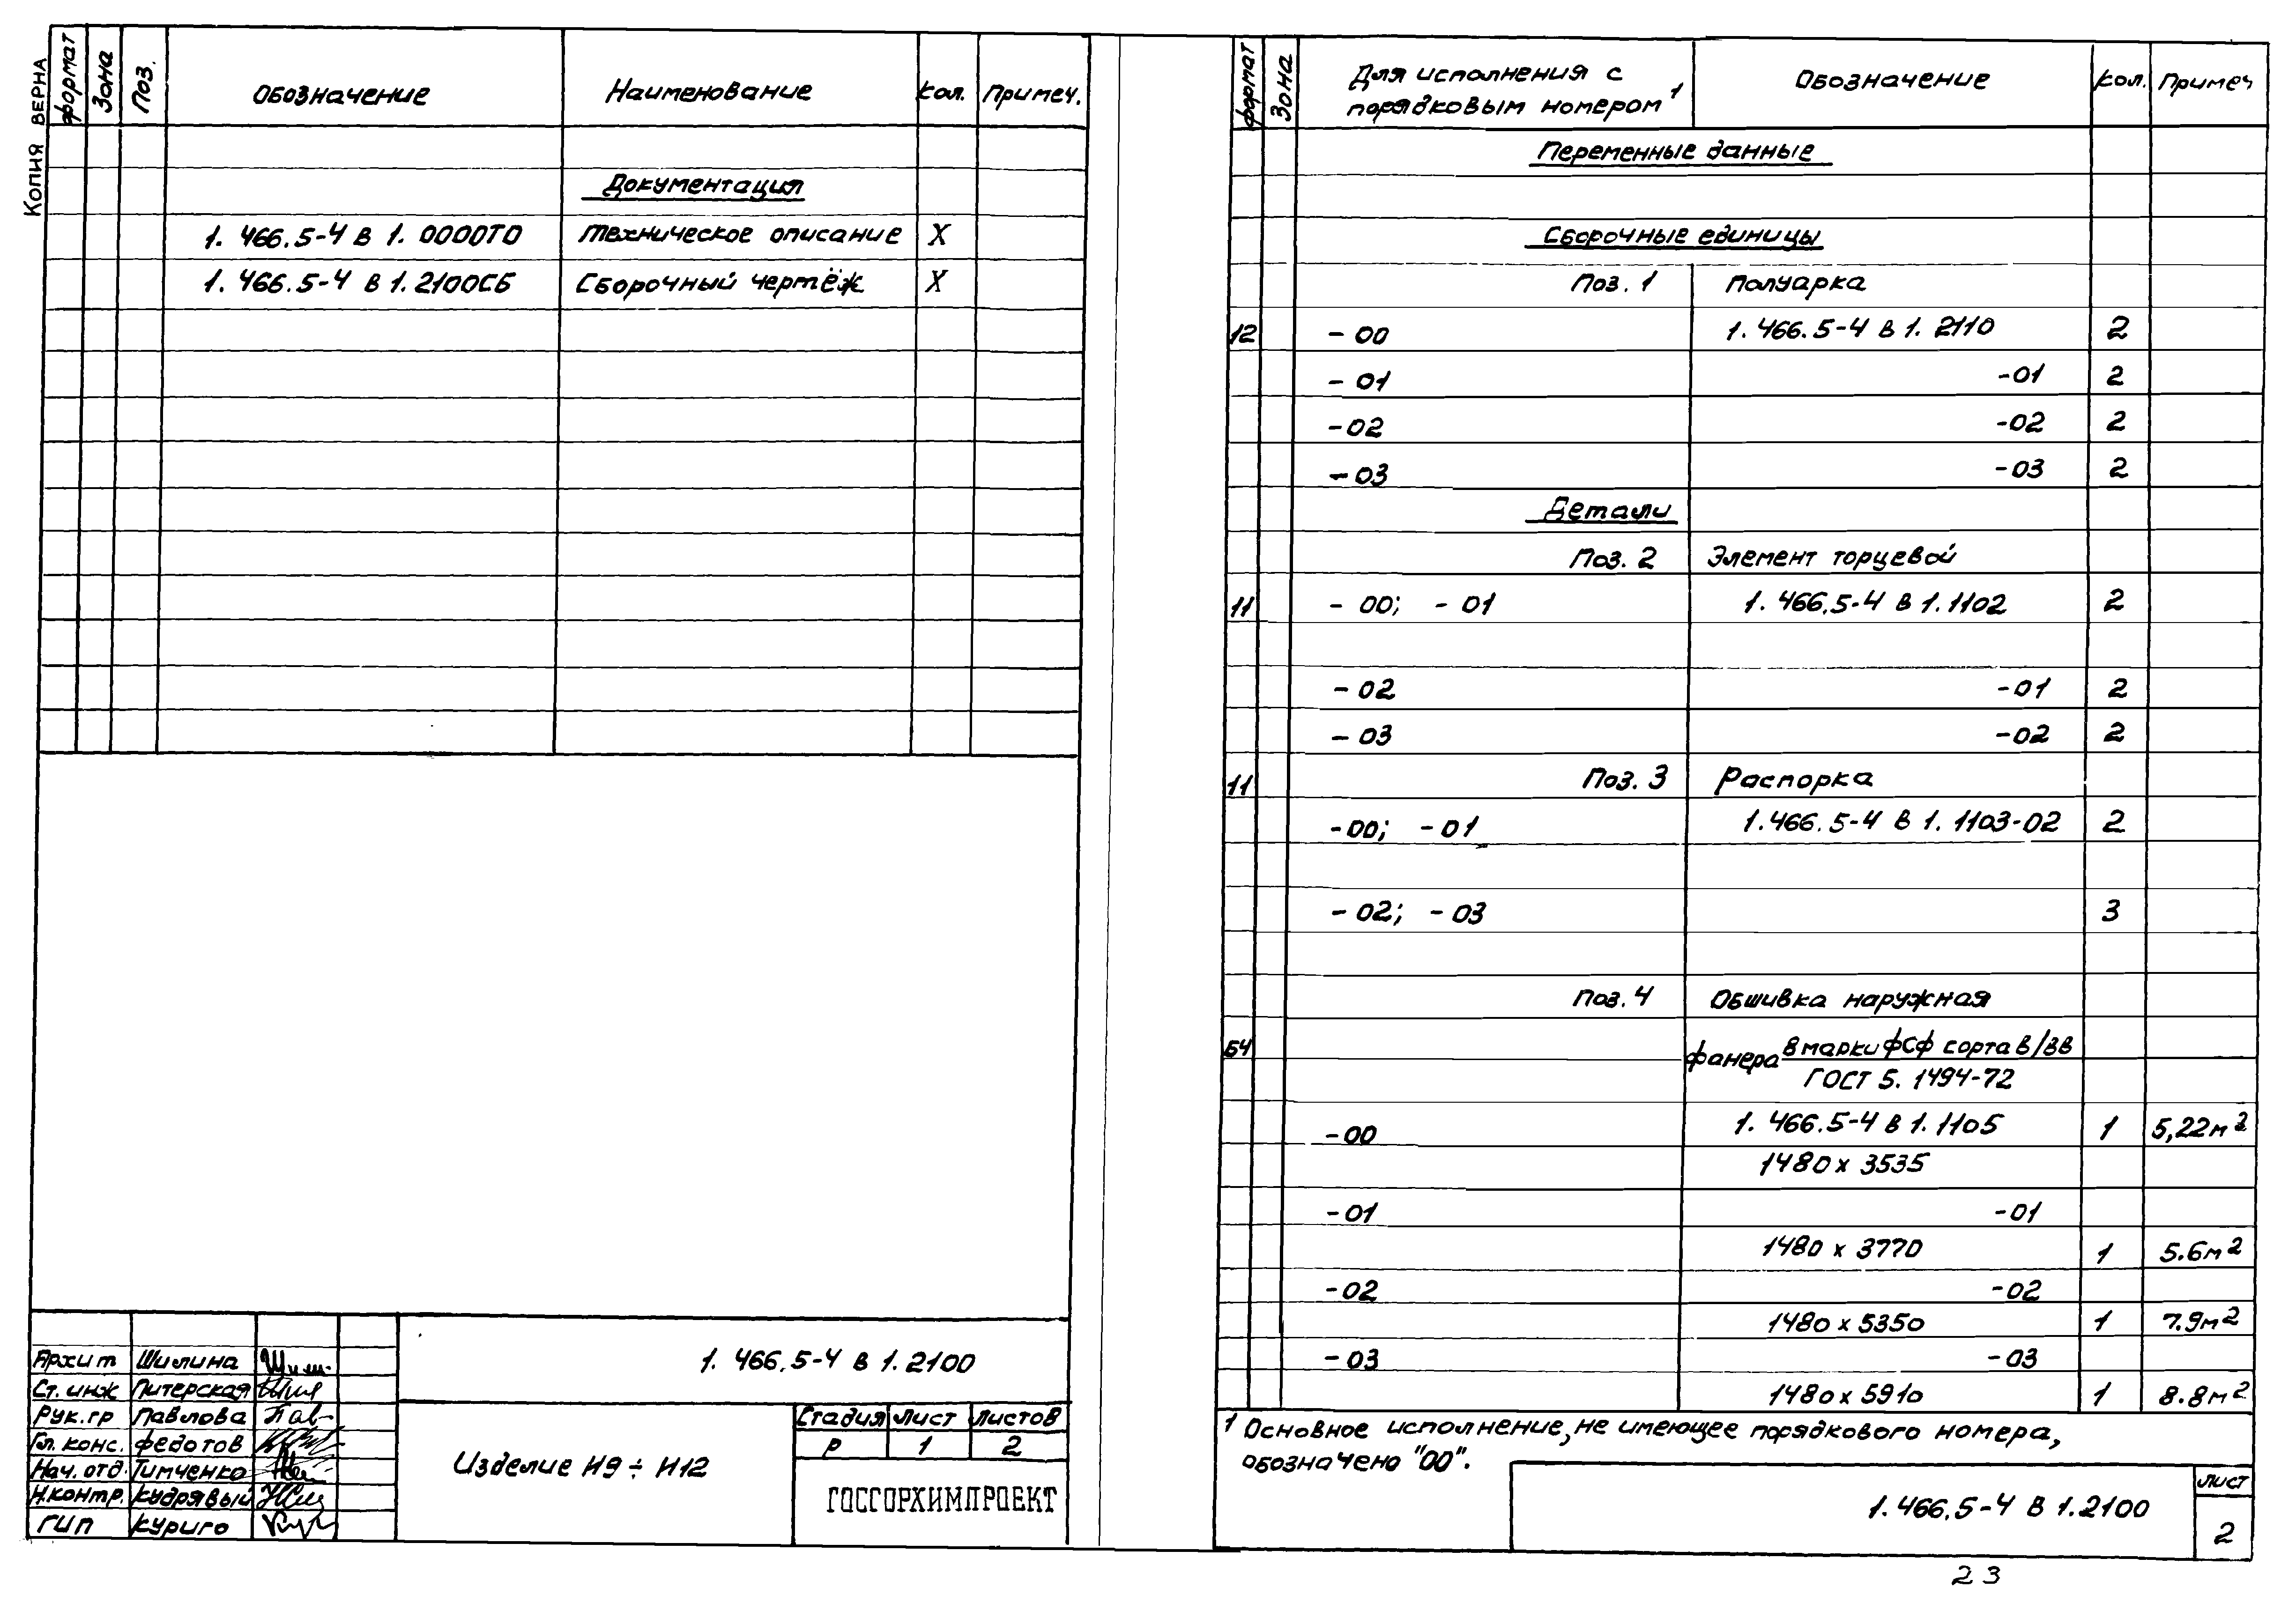 Копия верна
формат Зона Поз. Обозначение Наименование Кол. Примеч.
Документация
1. 466.5-4 В 1. 0000ТО Техническое описание X
1. 466.5-4 В 1. 2100СБ Сборочный чертёж X
1. 466.5-4 В 1. 2100
Архит Шилина
Ст. инж Питерская
Рук. гр Павлова
Гл. конс. Федотов
Нач. отд. Тимченко
Н.контр. Кудрявый
ГИП Куриго
Изделие И9 ÷ И12
Стадия Лист Листов
Р 1 2
ГОСГОРХИМПРОЕКТ
формат Зона Для исполнения с порядковым номером 1 Обозначение Кол. Примеч
Переменные данные
Сборочные единицы
Поз. 1 Полуарка
12 - 00 1. 466. 5-4 В 1. 2110 2
- 01 -01 2
-02 -02 2
- 03 -03 2
Детали
Поз. 2 Элемент торцевой
11 - 00; - 01 1. 466.5-4 В 1. 1102 2
- 02 -01 2
- 03 -02 2
11 Поз. 3 Распорка
-00; - 01 1.466. 5-4 В 1. 1103-02 2
- 02; - 03 3
Поз. 4 Обшивка наружная
БЧ фанера 8 марки ФСФ сорта В/ВВ
ГОСТ 5. 1494-72
-00 1. 466.5-4 В 1. 1105 1 5,22м²
1480 х 3535
-01 -01
1480 х 3770 1 5.6м²
-02 -02
1480 х 5350 1 7.9м²
-03 -03
1480 х 5910 1 8.8м²
1 Основное исполнение, не имеющее порядкового номера,
обозначено "00".
1. 466.5-4 В 1.2100
Лист
2
23